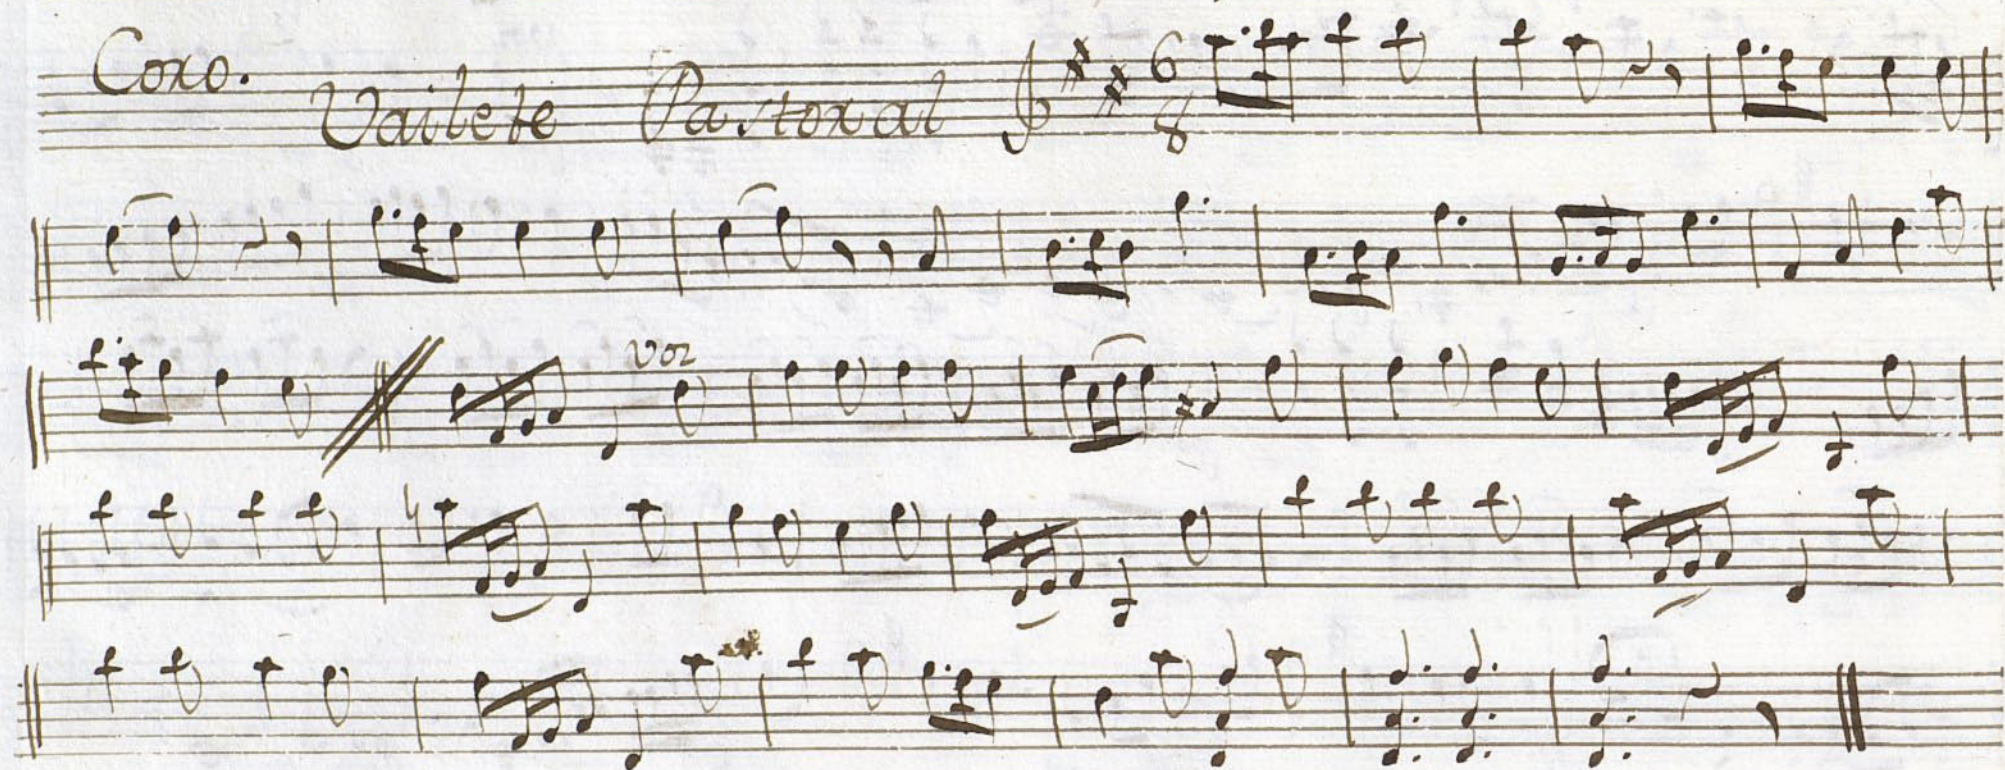 Coro.
Vailete Pastoral 6 8
voz